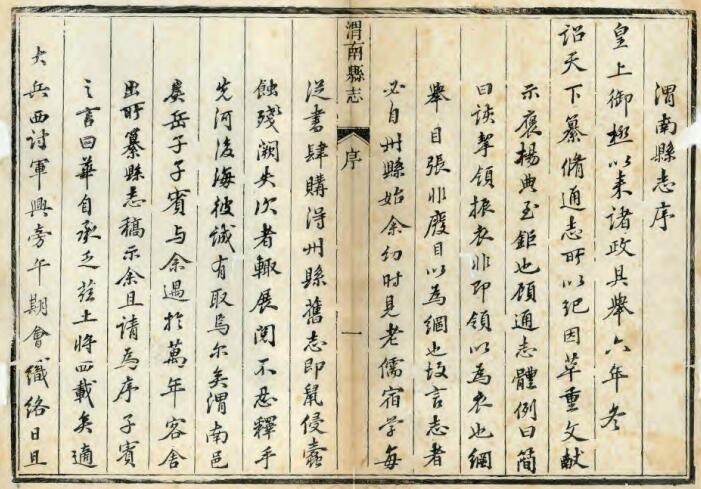 渭南縣志序
皇上御極以來諸政具舉六年冬
詔天下纂脩通志所以紀因革重文献
示褒揚典至鉅也顧通志體例曰簡
曰該挈領振衣非即領以為衣也綱
舉目張非廢目以為綱也故言志者
必自州縣始余幼時見老儒宿学每
渭南縣志
序
一
從書肆購得州縣舊志即鼠侵蠹
蝕殘闕失次者輒展閱不忍釋手
先河後海彼誠有取焉尔矣渭南邑
矦岳子子賓与余遇於萬年客舎
出所纂縣志稿示余且請為序子賓
之言曰華自承乏茲土將四載矣適
大兵西討軍興旁午期會織絡日且